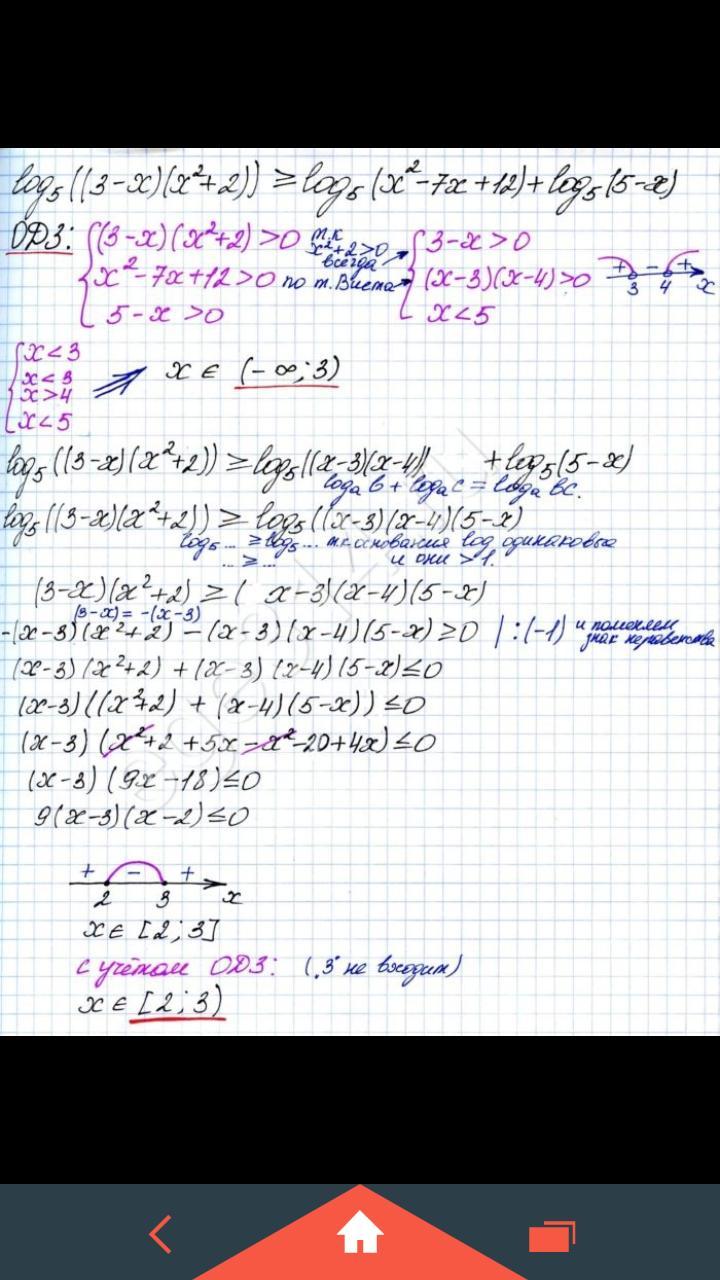 log₅((3-x)(x²+2)) ≥ log₅(x²-7x+12) + log₅(5-x)
ОДЗ: {(3-x)(x²+2)>0 т.к x²+2>0 всегда {3-x>0
x²-7x+12>0 по т. Виета (x-3)(x-4)>0 + - + 3 4 x
5-x>0 x<5
{x<3
x<3
x>4
x<5 ⇒ x ∈ (-∞; 3)
log₅((3-x)(x²+2)) ≥ log₅((x-3)(x-4)) + log₅(5-x)
logₐb + logₐc = logₐbc.
log₅((3-x)(x²+2)) ≥ log₅((x-3)(x-4)(5-x)
log₅... ≥ log₅... т.к основания log одинаковые
... ≥ ... и они > 1.
(3-x)(x²+2) ≥ (x-3)(x-4)(5-x)
(3-x) = -(x-3)
-(x-3)(x²+2) - (x-3)(x-4)(5-x) ≥ 0 | :(-1) и поменяем знак неравенства
(x-3)(x²+2) + (x-3)(x-4)(5-x) ≤ 0
(x-3)((x²+2) + (x-4)(5-x)) ≤ 0
(x-3)(x²+2+5x-x²-20+4x) ≤ 0
(x-3)(9x-18) ≤ 0
9(x-3)(x-2) ≤ 0
+ - +
2 3 x
x ∈ [2; 3]
с учётом ОДЗ: („3" не входит)
x ∈ [2; 3)